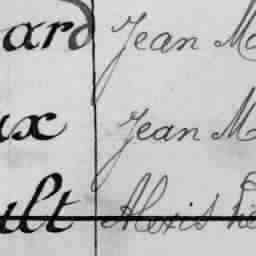 ard Jean M
ux Jean M
ult Alexis